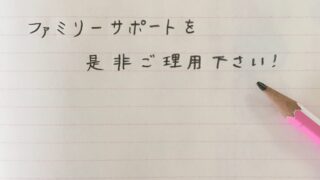 ファミリーサポートを
是非ご理用下さい!